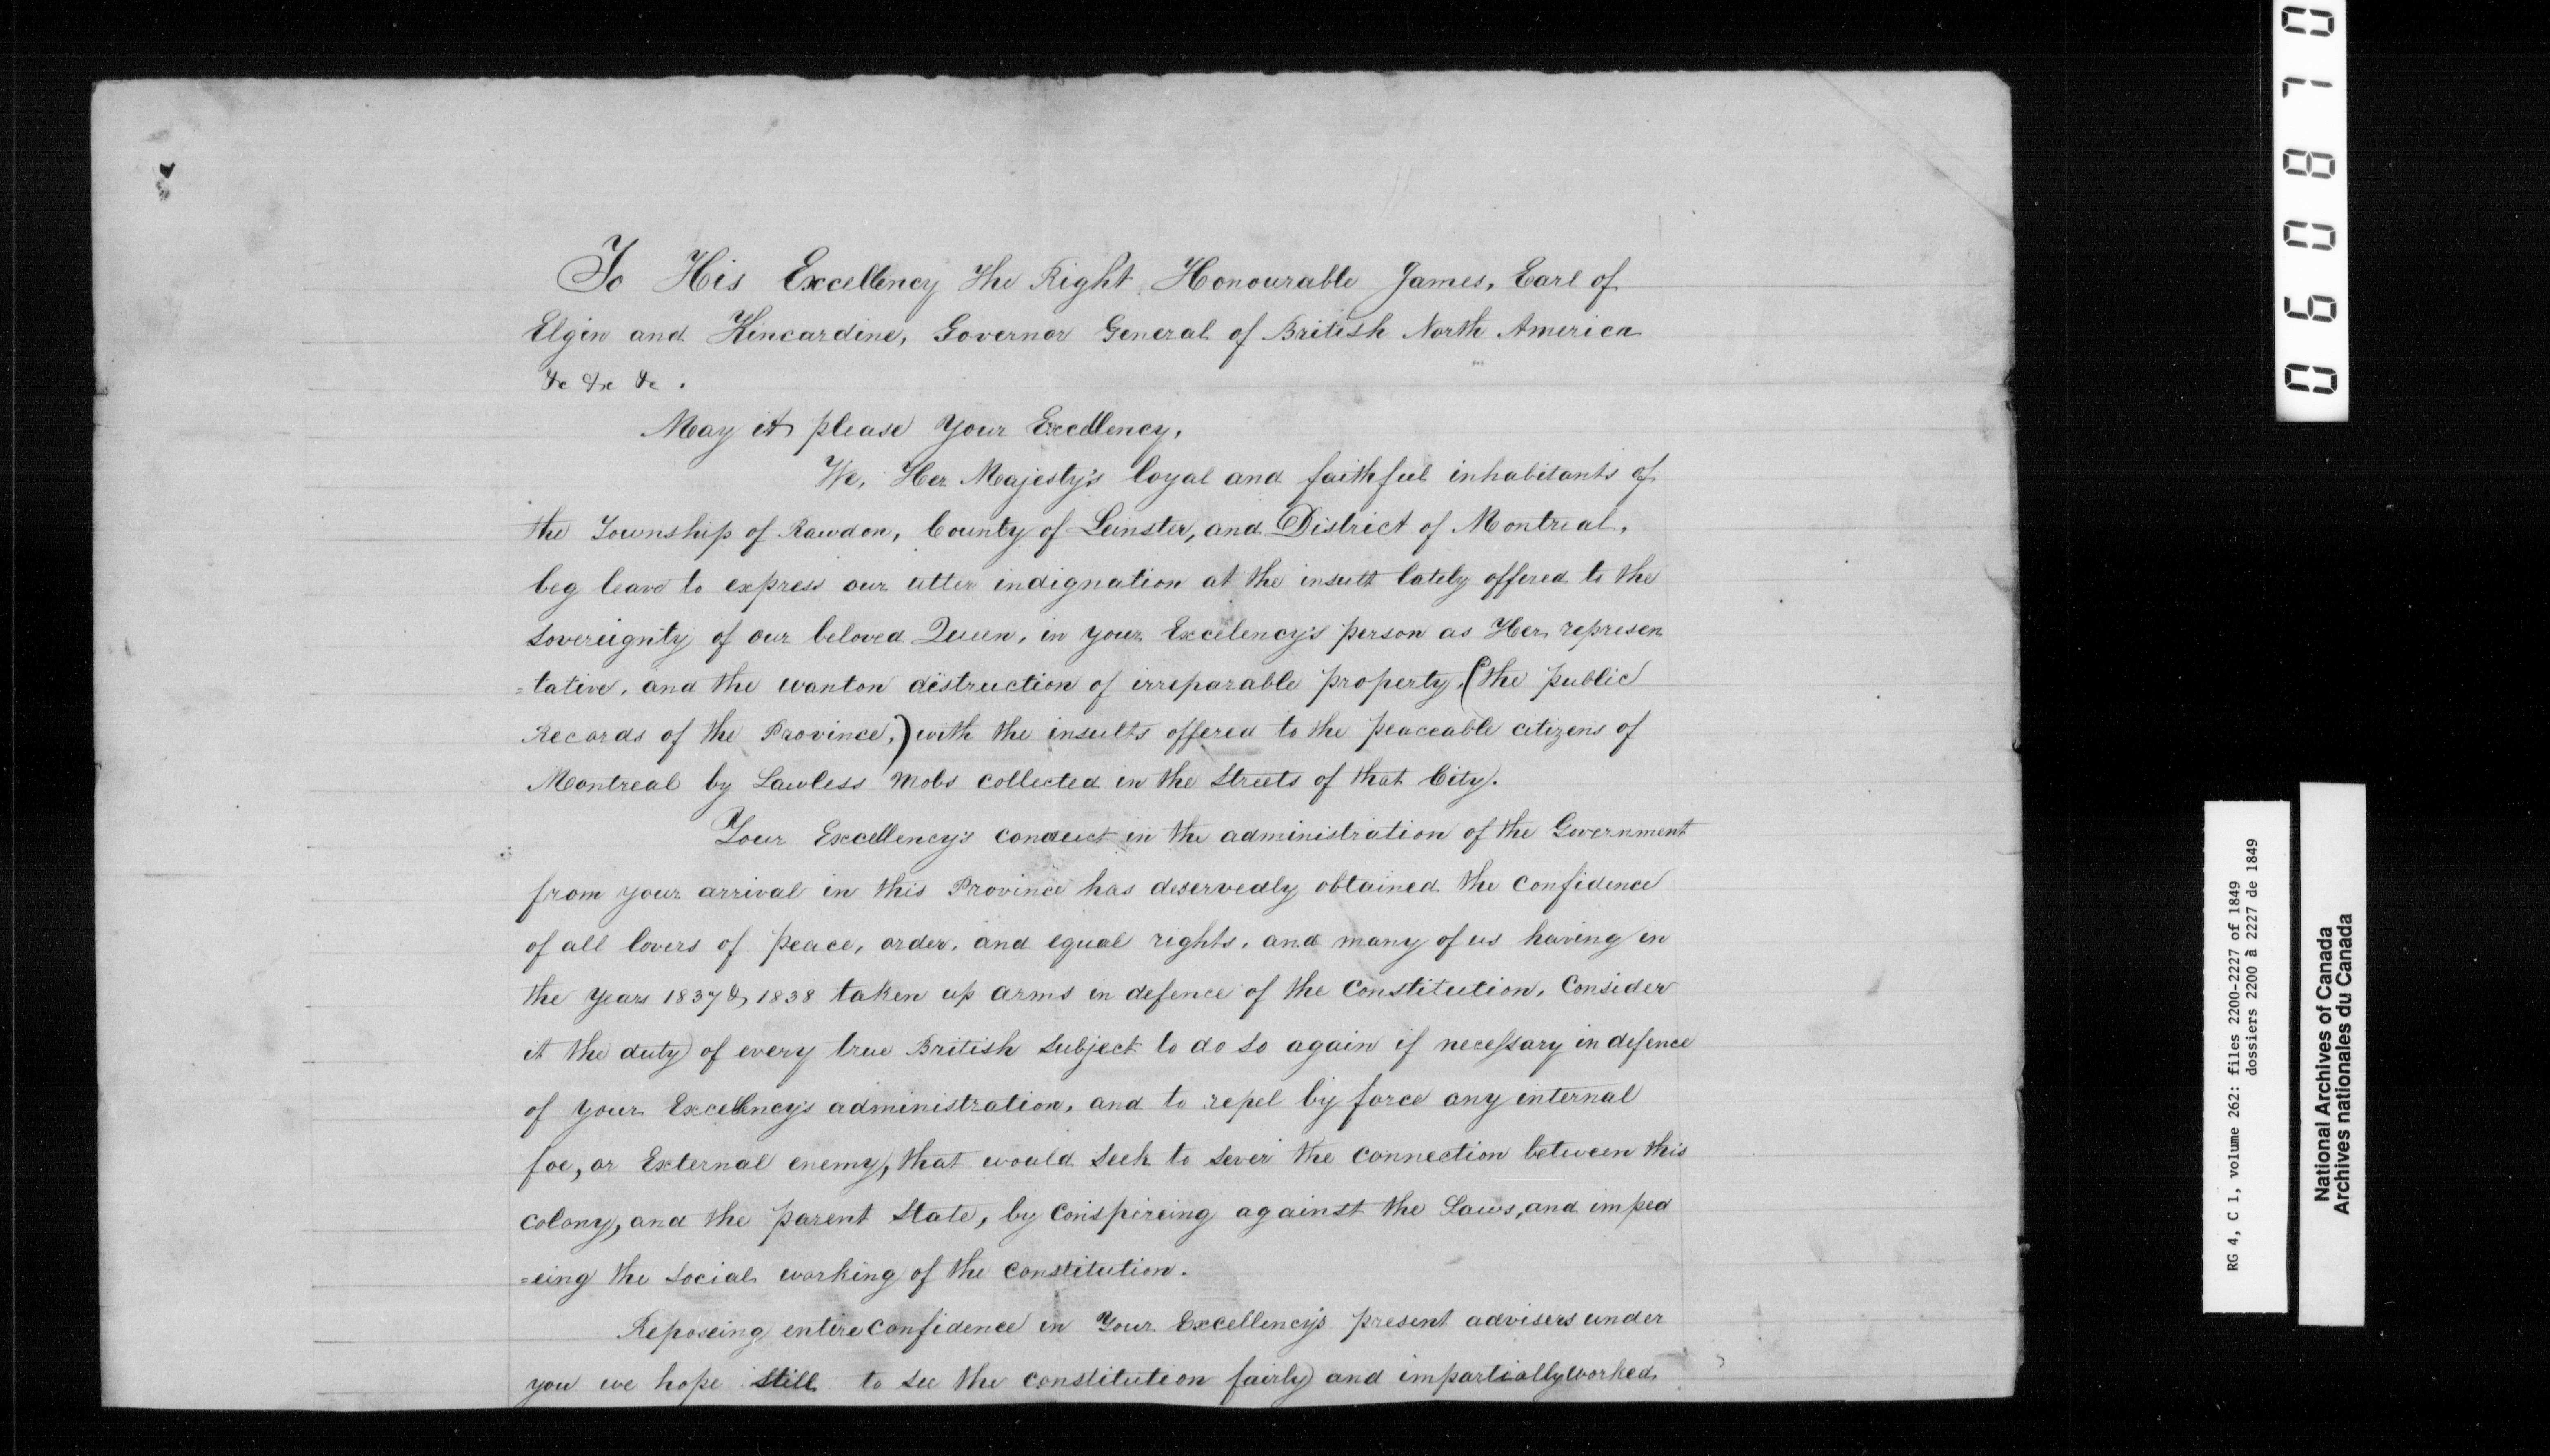 To His Excellency The Right Honourable James, Earl of
Elgin and Kincardine, Governor General of British North America
&c &c &c.
May it please Your Excellency,
We, Her Majesty's loyal and faithful inhabitants of
the Township of Rawdon, County of Leinster, and District of Montreal,
beg leave to express our utter indignation at the insult lately offered to the
Sovereignty of our beloved Queen, in your Excelency's person as Her represen
=tative, and the wanton distruction of irreparable property, (the public
Records of the Province,) with the insults offered to the peaceable citizens of
Montreal by Lawless mobs collected in the Streets of that City.
Your Excellency's conduct in the administration of the Government
from your arrival in this Province has deservedly obtained the confidence
of all lovers of peace, order, and equal rights, and many of us having in
the years 1837 & 1838 taken up arms in defence of the Constitution, Consider
it the duty of every true British Subject to do so again if necessary in defence
of your Excellency's administration, and to repel by force any internal
foe, or External enemy, that would seek to sever the connection between this
colony, and the parent State, by Conspireing against the Laws, and imped
=eing the social working of the constitution.
Reposeing entire confidence in Your Excellency's present advisers under
you we hope still to see the constitution fairly and impartially worked.
060870
RG 4, C 1, volume 262: files 2200-2227 of 1849
dossiers 2200 à 2227 de 1849
National Archives of Canada
Archives nationales du Canada